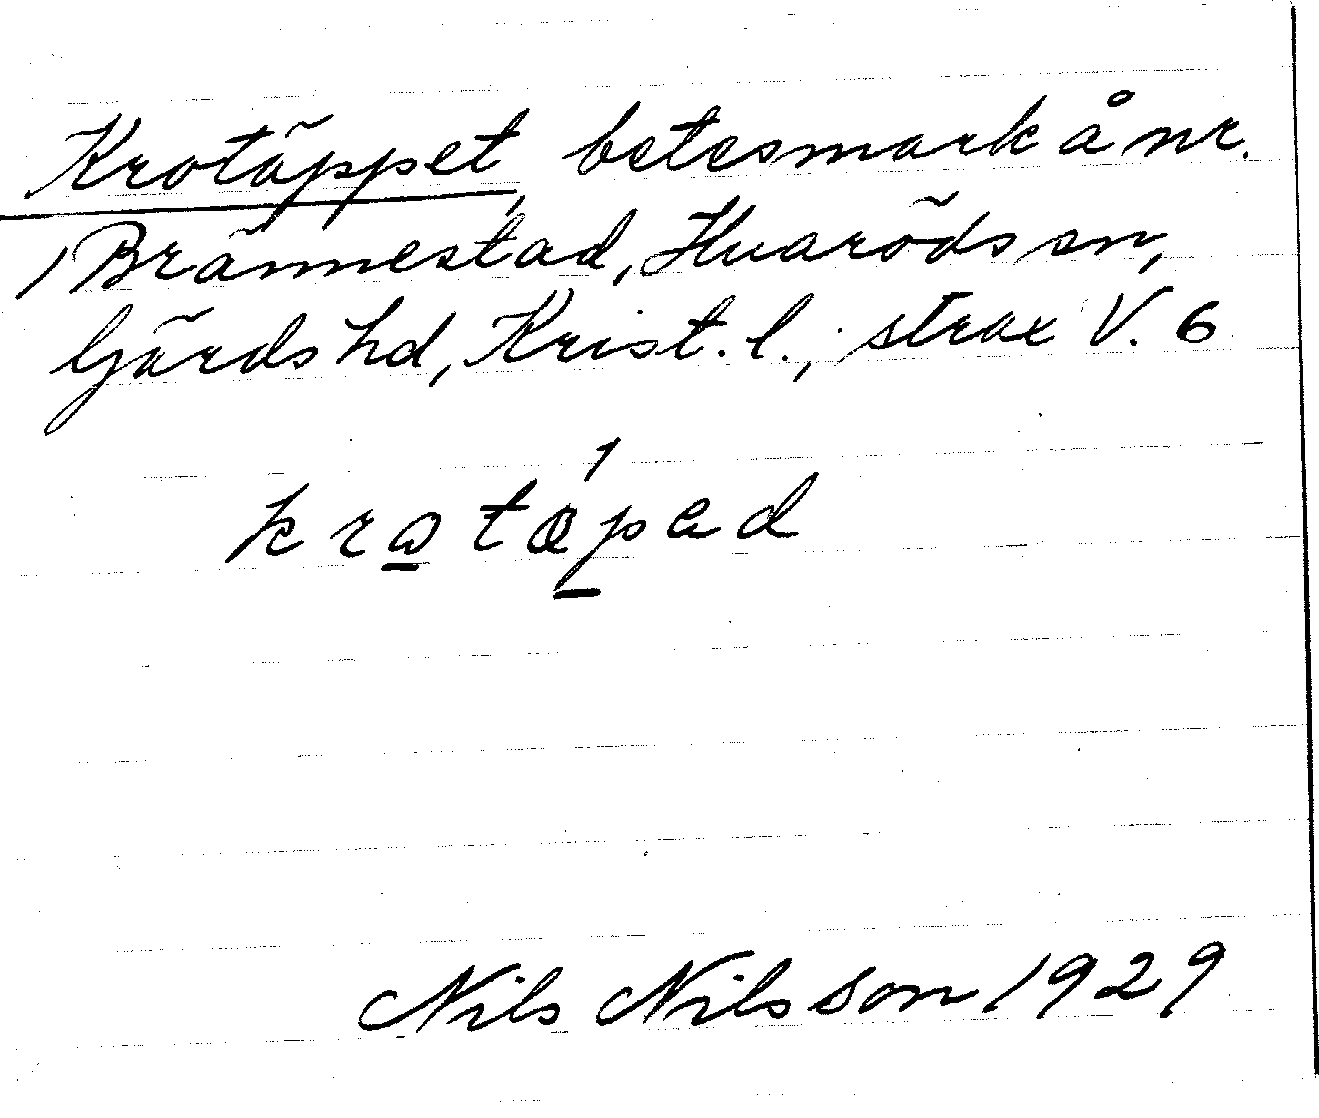 Krotäppet, betesmark å nr.
1 Brännestad, Huaröds sn,
Gärds hd, Krist. l., strax V. 6
krotäpad
Nils Nilsson 1929